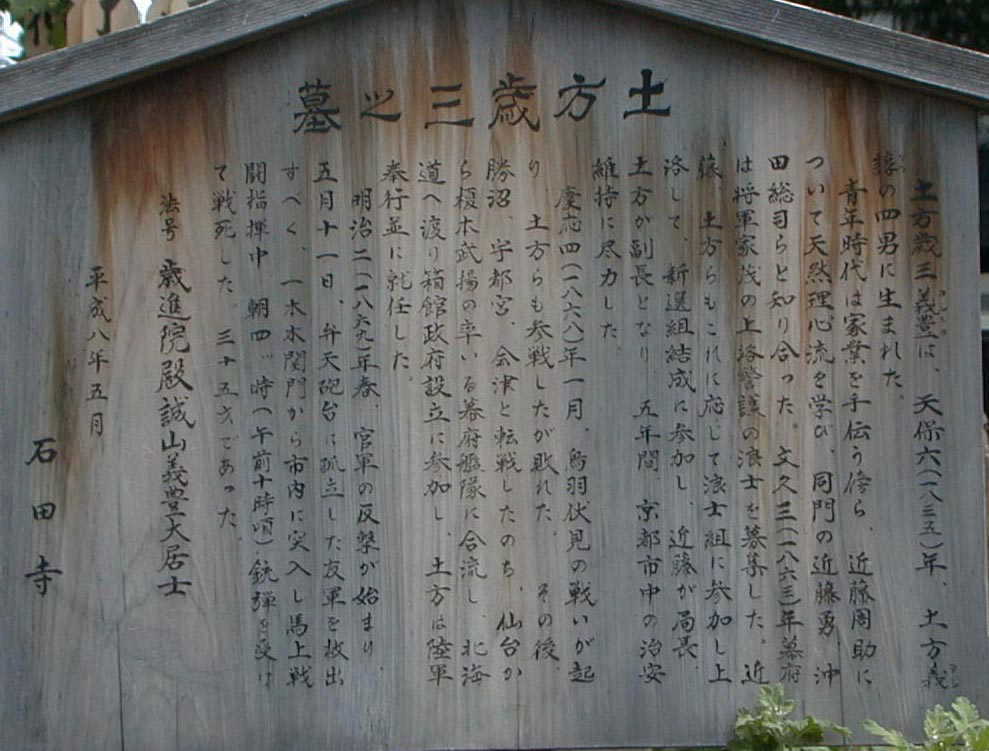 土方歳三之墓
土方歳三義豊は、天保六(一八三五)年、土方義
諄の四男に生まれた。
青年時代は家業を手伝う傍ら、近藤周助に
ついて天然理心流を学び、同門の近藤勇、沖
田総司らと知り合った。文久三(一八六三)年幕府
は将軍家茂の上洛警護の浪士を募集した。近
藤、土方らもこれに応じて浪士組に参加し上
洛して、新選組結成に参加し、近藤が局長、
土方が副長となり、五年間、京都市中の治安
維持に尽力した。
慶応四(一八六八)年一月、鳥羽伏見の戦いが起
り、土方らも参戦したが敗れた。その後、
勝沼、宇都宮、会津と転戦したのち、仙台か
ら榎本武揚の率いる幕府艦隊に合流し、北海
道へ渡り箱館政府設立に参加し、土方は陸軍
奉行並に就任した。
明治二(一八六九)年春、官軍の反撃が始まり、
五月十一日、弁天砲台に孤立した友軍を救出
すべく、一本木関門から市内に突入し馬上戦
闘指揮中、朝四ッ時(午前十時頃)銃弾を受け
て戦死した。三十五才であった
法号 歳進院殿誠山義豊大居士
平成八年五月
石田寺